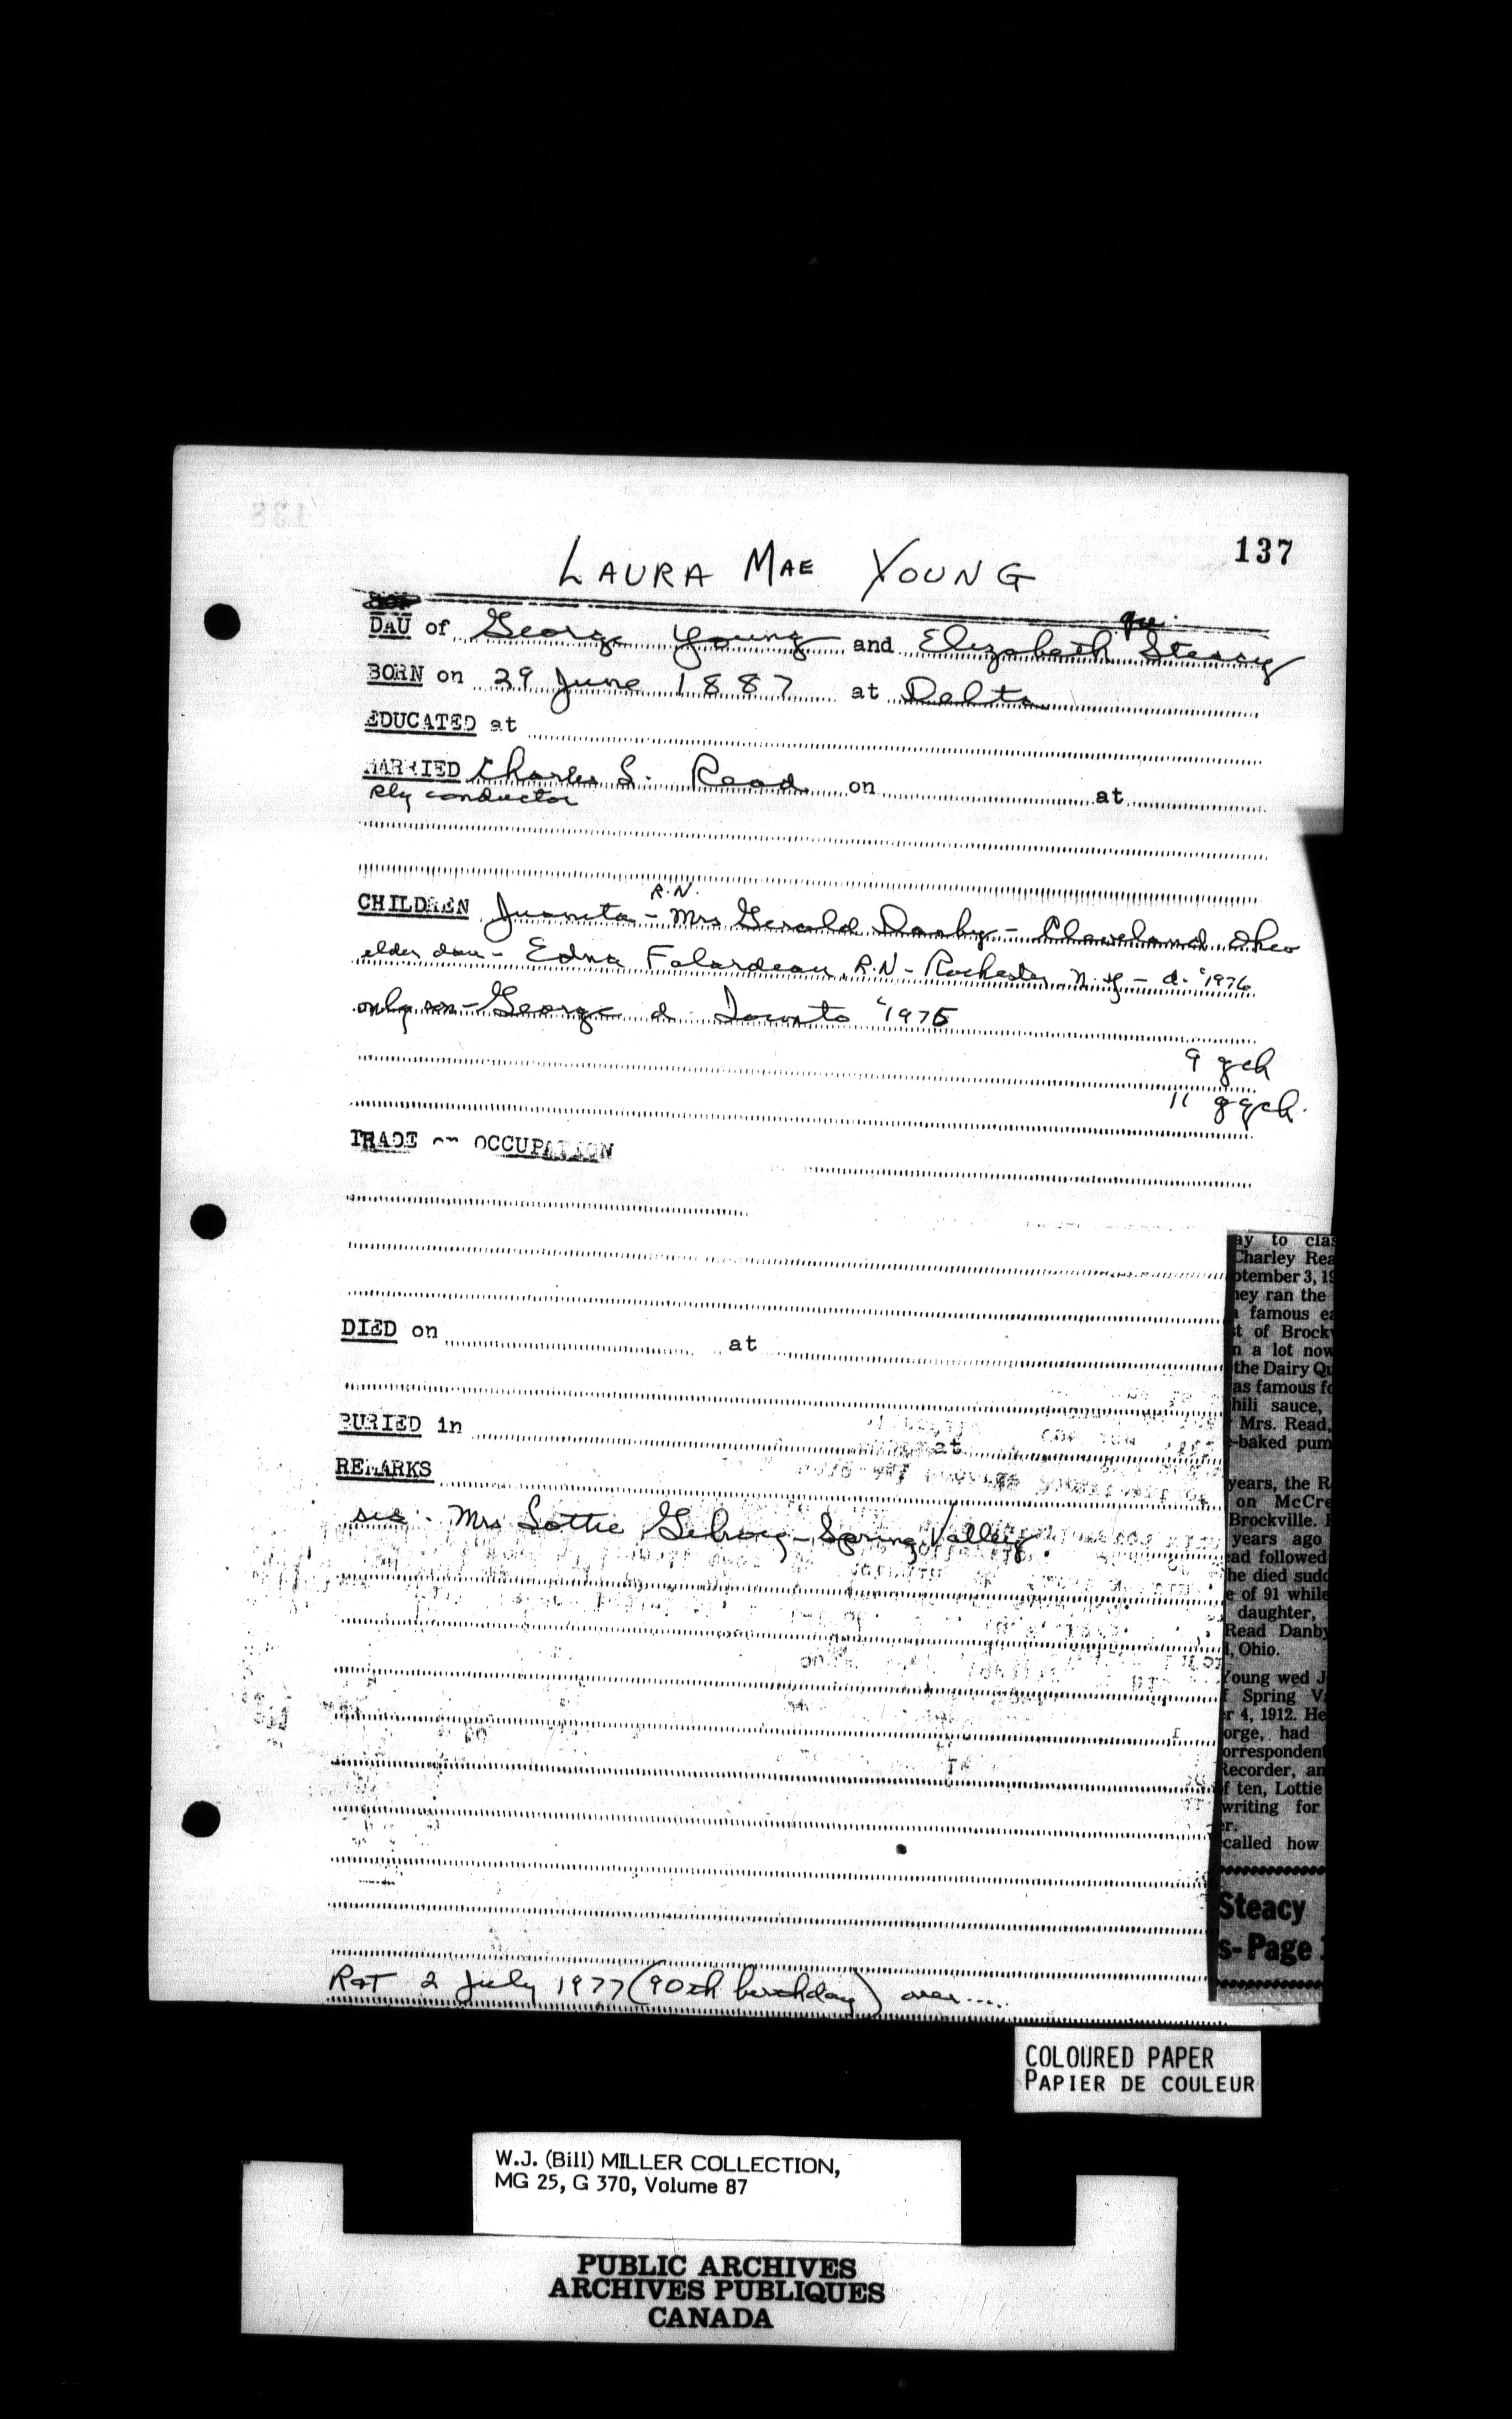 137
LAURA MAE YOUNG
DAU of George Young and Elizabeth Steacy
BORN on 29 June 1887 at Delta
EDUCATED at
MARRIED Charles S. Read on at
Rly conductor
R.N.
CHILDREN Juanita - Mrs Gerald Danby - Cleveland Ohio
elder dau - Edna Falardeau R.N - Rochester N.Y - d. '1976
only son - George d. Toronto '1975
9 gch
11 ggch.
TRADE or OCCUPATION
DIED on at
BURIED in at
REMARKS
sis. Mrs Lottie - Spring Valley
R&T 2 July 1977 (90th birthday) over....
ay to clas
Charley Rea
ptember 3, 19
hey ran the
famous ea
t of Brockv
n a lot now
the Dairy Qu
as famous fo
hili sauce,
Mrs. Read,
-baked pum
years, the R
on McCre
Brockville.
years ago
ead followed
he died sudd
e of 91 while
daughter,
Read Danby
, Ohio.
Young wed J
f Spring Va
r 4, 1912. He
orge, had
orrespondent
Recorder, an
f ten, Lottie
writing for
er.
called how
Steacy
s- Page
COLOURED PAPER
PAPIER DE COULEUR
W.J. (Bill) MILLER COLLECTION,
MG 25, G 370, Volume 87
PUBLIC ARCHIVES
ARCHIVES PUBLIQUES
CANADA